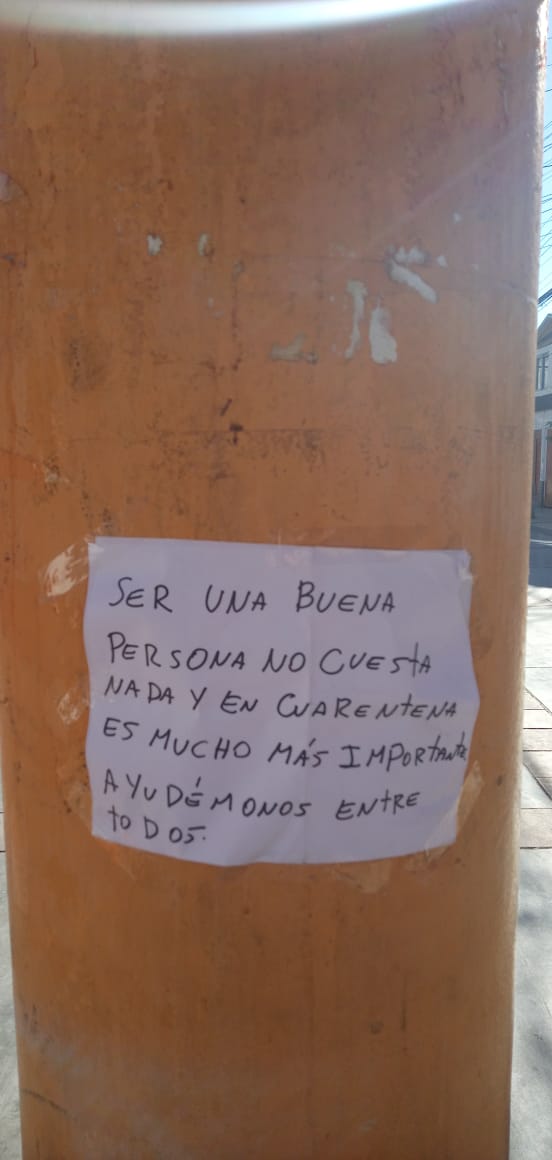 SER UNA BUENA
PERSONA NO CUESTA
NADA Y EN CUARENTENA
ES MUCHO MÁS IMPORTANTE
AYUDÉMONOS ENTRE
TODOS.